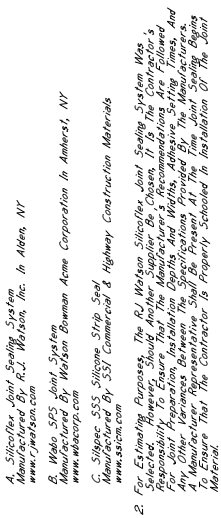 A. Silicoflex Joint Sealing System
Manufactured By R.J. Watson, Inc. In Alden, NY
www.rjwatson.com
B. Wabo SPS Joint System
Manufactured By Watson Bowman Acme Corporation In Amherst, NY
www.wbacorp.com
C. Silspec SSS Silicone Strip Seal
Manufactured By SSI Commercial & Highway Construction Materials
www.ssicm.com
2. For Estimating Purposes, The RJ Watson Silicoflex Joint Sealing System Was
Selected. However, Should Another Supplier Be Chosen, It Is The Contractor's
Responsibility To Ensure That The Manufacturer's Recommendations Are Followed
For Joint Preparation, Installation Depths And Widths, Adhesive Setting Times, And
Any Other Variances Between The Specifications Provided By The Manufacturers.
A Manufacturer Representative Shall Be Present At The Time Joint Sealing Begins
To Ensure That The Contractor Is Properly Schooled In Installation Of The Joint
Material.